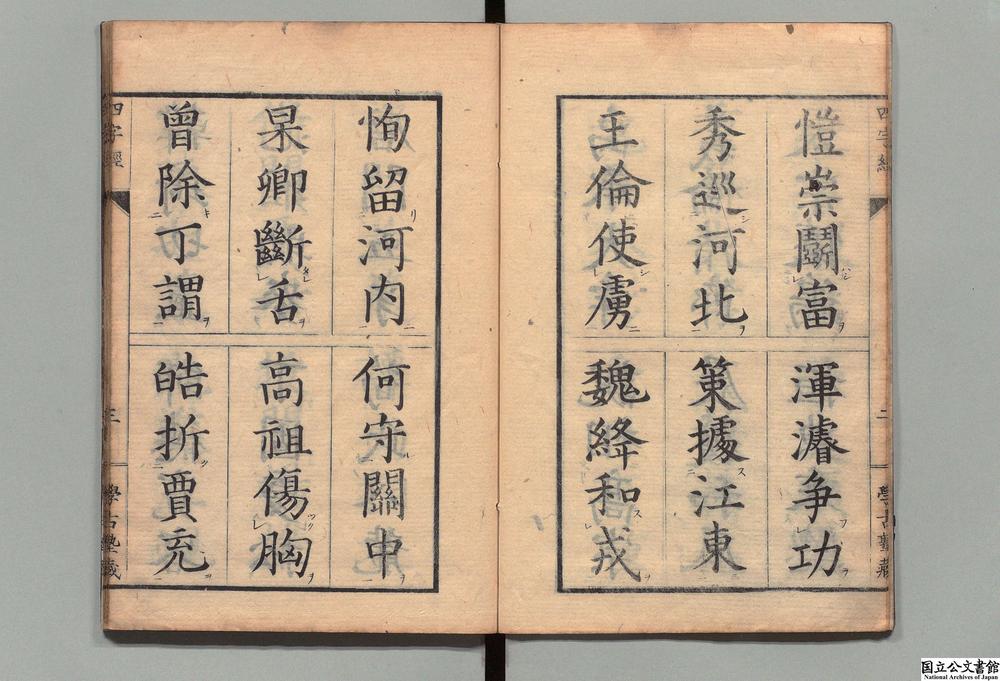 四字經
愷崇鬭富
渾濬争功
秀巡河北
策據江東
王倫使虜
魏絳和戎
二
學古塾藏
恂留河内
何守關中
杲卿斷舌
高祖傷胸
曾除丁謂
皓折賈充
四字經
三
學古塾藏
国立公文書館
National Archives of Japan